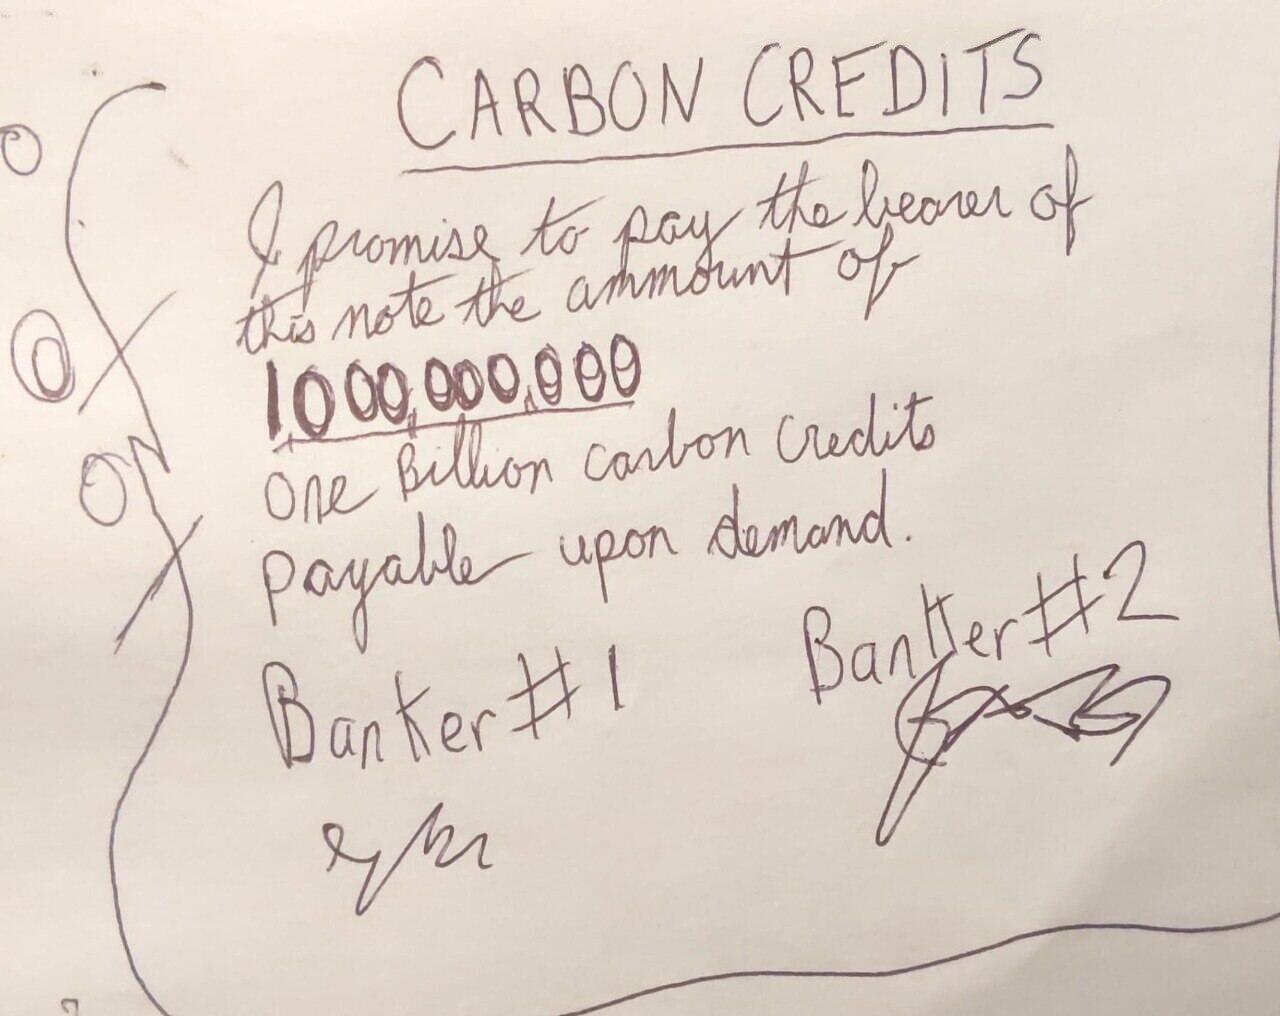 CARBON CREDITS
I promise to pay the bearer of
this note the ammount of
1,000,000,000
One Billion carbon credits
payable upon demand.
Banker #1
Banker #2